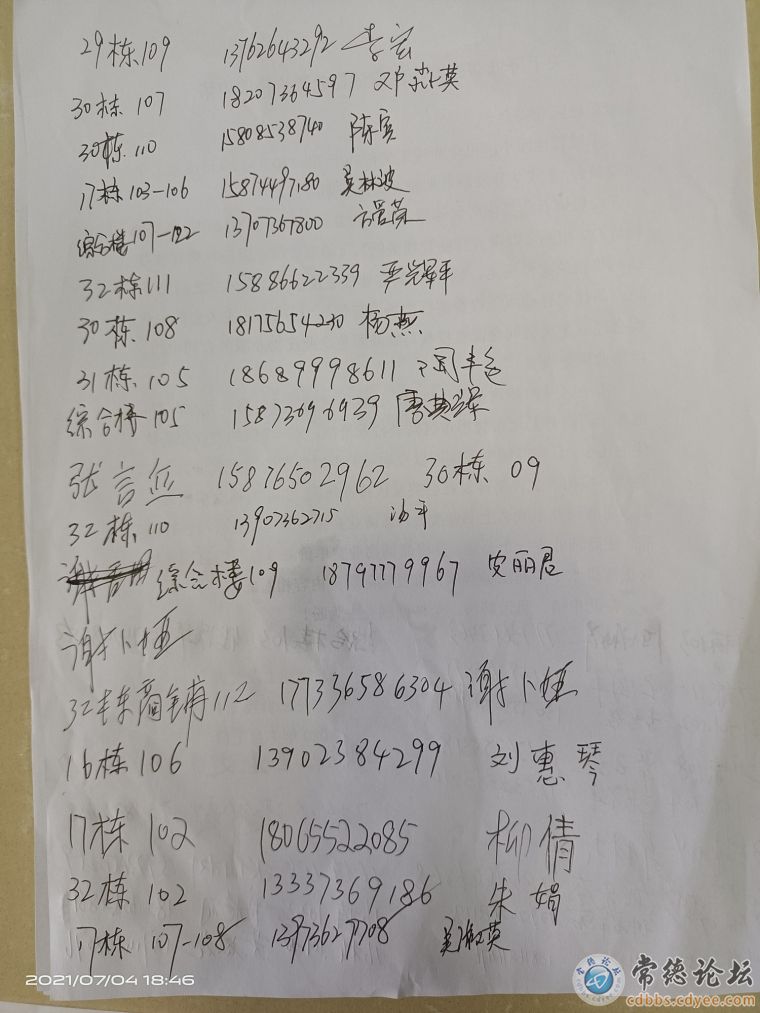 29栋109 13762643292 李宏
30栋 107 18207364597 邓淑英
30栋 110 15808538740 陈宾
17栋 103-106 15874497180 吴林波
综合楼107-122 13707367800
32栋111 15886622339 辉平
30栋 108 18175654230 杨燕
31栋 105 18689998611 周丰
综合楼 105 15873696939 唐典
张言 15876502962 30栋 09
32栋 110 13907362715 平
综合楼109 18797779967 安丽君
谢卜
32栋商铺112 17736586304 谢卜
16栋 106 13902384299 刘惠琴
17栋 102 18065522085 柳倩
32栋 102 13337369186 朱娟
17栋 107-108 13973627708 吴淑英
2021/07/04 18:46
常德论坛
cdbbs.cdyee.com